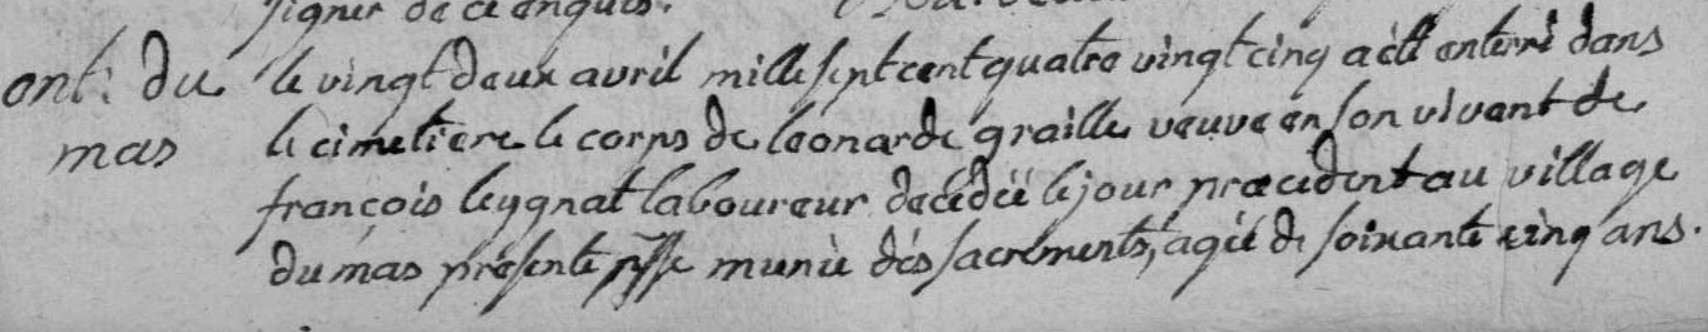 signer de ce enquis.
ent: du le vingt deux avril mille sept cent quatre vingt cinq a été enterré dans
mas le cimetiere le corps de leonarde graille veuve en son vivant de
françois leygnat laboureur decédéé le jour præcedent au village
du mas présente psse munie dés sacréments, agéé de soixante cinq ans.